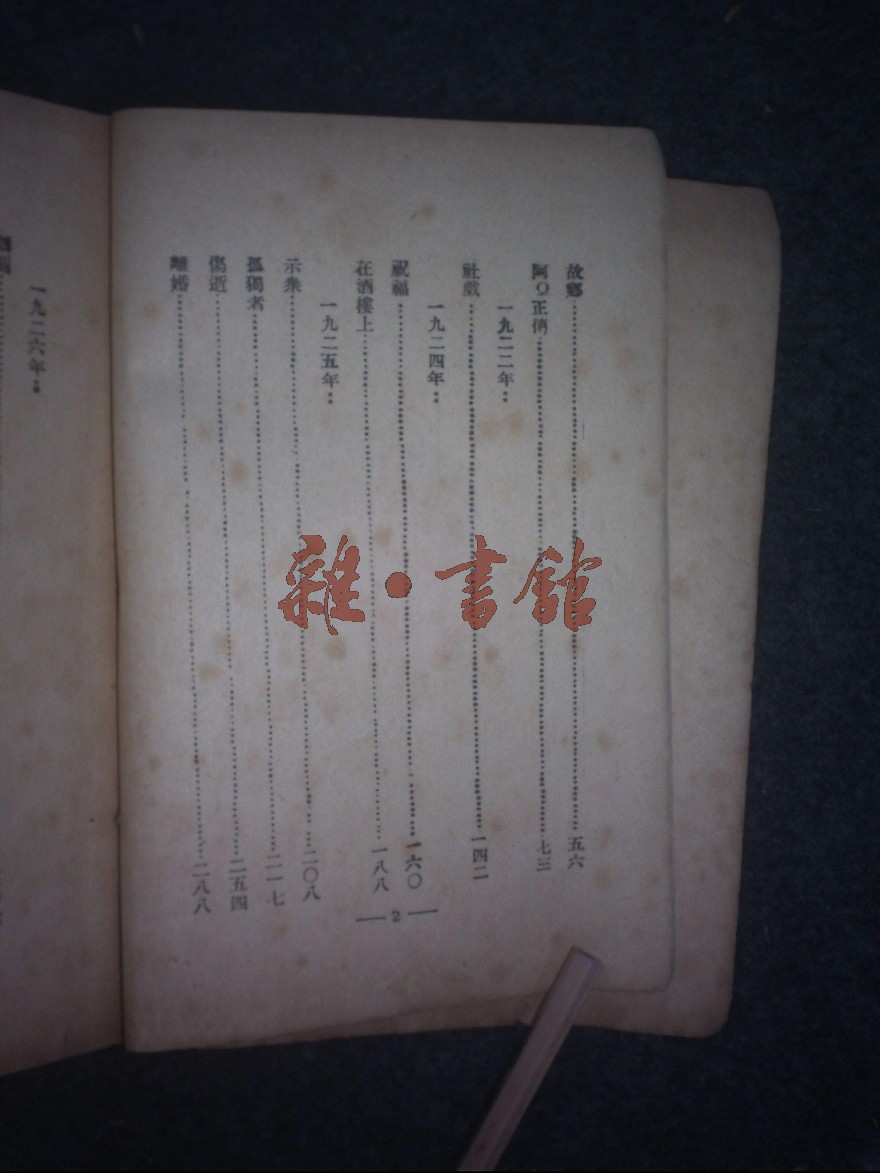 故鄉……五六
阿Q正傳……七三
一九二二年：
社戲……一四二
一九二四年：
祝福……一六〇
在酒樓上……一八八
一九二五年：
示衆……二〇八
孤獨者……二一七
傷逝……二五四
離婚……二八八
— 2 —
一九二六年：
雜·書館